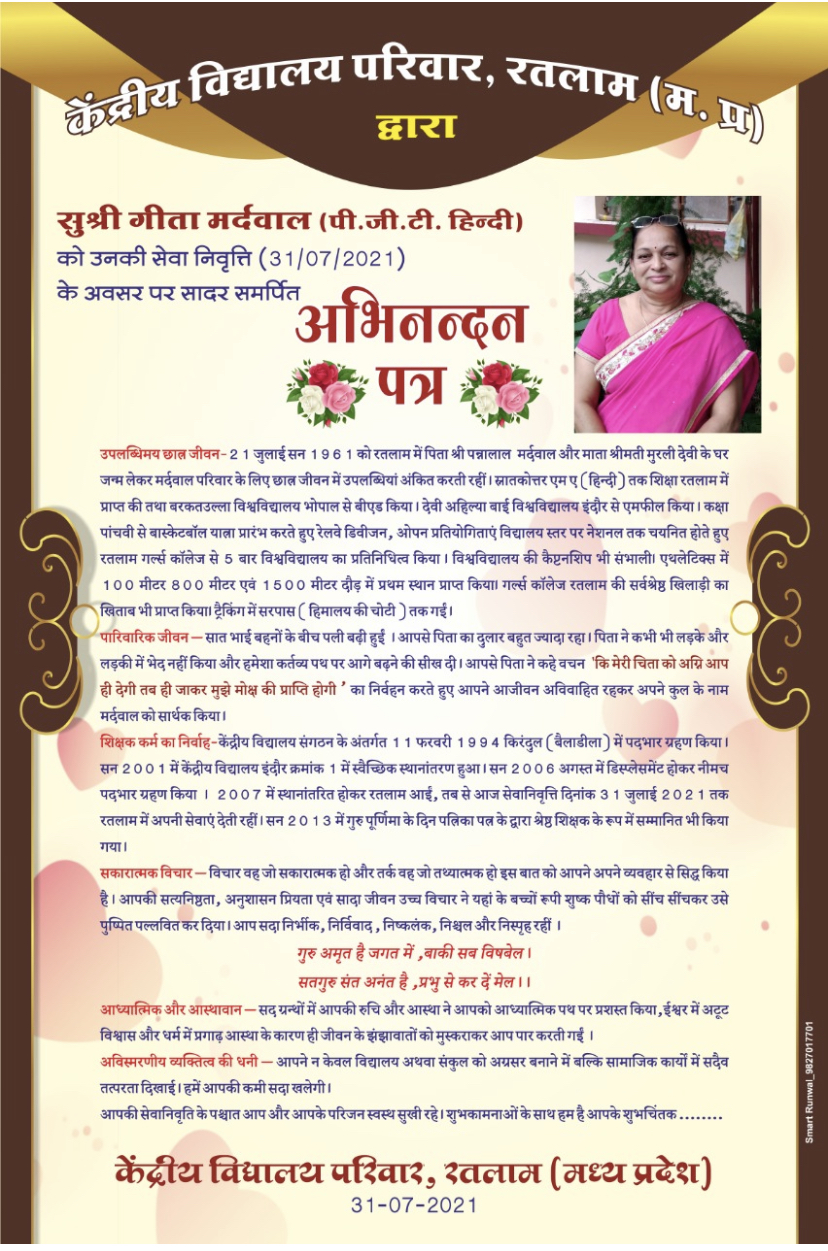 केंद्रीय विद्यालय परिवार, रतलाम (म. प्र)
द्वारा
सुश्री गीता मर्दवाल (पी.जी.टी. हिन्दी)
को उनकी सेवा निवृत्ति (31/07/2021)
के अवसर पर सादर समर्पित
अभिनन्दन
पत्र
उपलब्धिमय छात्र जीवन- 21 जुलाई सन 1961 को रतलाम में पिता श्री पन्नालाल मर्दवाल और माता श्रीमती मुरली देवी के घर
जन्म लेकर मर्दवाल परिवार के लिए छात्र जीवन में उपलब्धियां अंकित करती रहीं। स्नातकोत्तर एम ए (हिन्दी) तक शिक्षा रतलाम में
प्राप्त की तथा बरकतउल्ला विश्वविद्यालय भोपाल से बीएड किया। देवी अहिल्या बाई विश्वविद्यालय इंदौर से एमफील किया। कक्षा
पांचवी से बास्केटबॉल यात्रा प्रारंभ करते हुए रेलवे डिवीजन, ओपन प्रतियोगिताएं विद्यालय स्तर पर नेशनल तक चयनित होते हुए
रतलाम गर्ल्स कॉलेज से 5 बार विश्वविद्यालय का प्रतिनिधित्व किया। विश्वविद्यालय की कैप्टनशिप भी संभाली। एथलेटिक्स में
100 मीटर 800 मीटर एवं 1500 मीटर दौड़ में प्रथम स्थान प्राप्त किया। गर्ल्स कॉलेज रतलाम की सर्वश्रेष्ठ खिलाड़ी का
खिताब भी प्राप्त किया। ट्रैकिंग में सरपास ( हिमालय की चोटी ) तक गई।
पारिवारिक जीवन – सात भाई बहनों के बीच पली बढ़ी हुईं । आपसे पिता का दुलार बहुत ज्यादा रहा। पिता ने कभी भी लड़के और
लड़की में भेद नहीं किया और हमेशा कर्तव्य पथ पर आगे बढ़ने की सीख दी। आपसे पिता ने कहे वचन 'कि मेरी चिता को अग्नि आप
ही देगी तब ही जाकर मुझे मोक्ष की प्राप्ति होगी ' का निर्वहन करते हुए आपने आजीवन अविवाहित रहकर अपने कुल के नाम
मर्दवाल को सार्थक किया।
शिक्षक कर्म का निर्वाह- केंद्रीय विद्यालय संगठन के अंतर्गत 11 फरवरी 1994 किरंदुल (बैलाडीला) में पदभार ग्रहण किया।
सन 2001 में केंद्रीय विद्यालय इंदौर क्रमांक 1 में स्वैच्छिक स्थानांतरण हुआ। सन 2006 अगस्त में डिस्प्लेसमेंट होकर नीमच
पदभार ग्रहण किया । 2007 में स्थानांतरित होकर रतलाम आईं, तब से आज सेवानिवृत्ति दिनांक 31 जुलाई 2021 तक
रतलाम में अपनी सेवाएं देती रहीं। सन 2013 में गुरु पूर्णिमा के दिन पत्रिका पत्र के द्वारा श्रेष्ठ शिक्षक के रूप में सम्मानित भी किया
गया।
सकारात्मक विचार – विचार वह जो सकारात्मक हो और तर्क वह जो तथ्यात्मक हो इस बात को आपने अपने व्यवहार से सिद्ध किया
है। आपकी सत्यनिष्ठता, अनुशासन प्रियता एवं सादा जीवन उच्च विचार ने यहां के बच्चों रूपी शुष्क पौधों को सींच सींचकर उसे
पुष्पित पल्लवित कर दिया। आप सदा निर्भीक, निर्विवाद , निष्कलंक, निश्चल और निस्पृह रहीं ।
गुरु अमृत है जगत में ,बाकी सब विषबेल।
सतगुरु संत अनंत है ,प्रभु से कर दें मेल।।
आध्यात्मिक और आस्थावान – सद ग्रन्थों में आपकी रुचि और आस्था ने आपको आध्यात्मिक पथ पर प्रशस्त किया,ईश्वर में अटूट
विश्वास और धर्म में प्रगाढ़ आस्था के कारण ही जीवन के झंझावातों को मुस्कराकर आप पार करती गईं ।
अविस्मरणीय व्यक्तित्व की धनी – आपने न केवल विद्यालय अथवा संकुल को अग्रसर बनाने में बल्कि सामाजिक कार्यों में सदैव
तत्परता दिखाई। हमें आपकी कमी सदा खलेगी।
आपकी सेवानिवृति के पश्चात आप और आपके परिजन स्वस्थ सुखी रहे। शुभकामनाओं के साथ हम है आपके शुभचिंतक ........
केंद्रीय विद्यालय परिवार, रतलाम (मध्य प्रदेश)
31-07-2021
Smart Runwal_9827017701